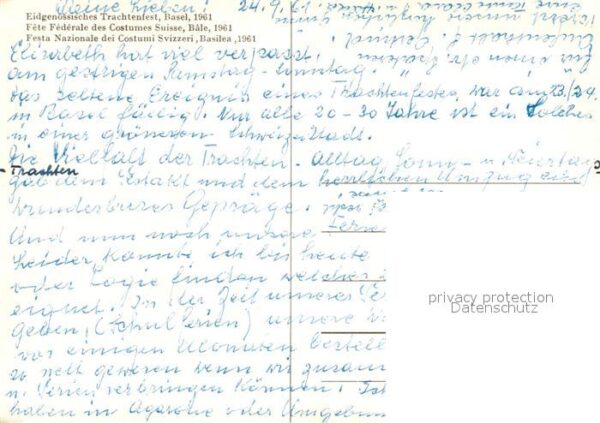 Meine Lieben! 24.9.61.
Eidgenössisches Trachtenfest, Basel, 1961
Fête Fédérale des Costumes Suisse, Bâle, 1961
Festa Nazionale dei Costumi Svizzeri, Basilea, 1961
Elisabeth hat viel verpasst
am gestrigen Samstag - Sonntag.
Das seltene Ereignis eines Trachtenfestes, war am 23./24.
in Basel fällig! Nur alle 20-30 Jahre ist ein Solches
in einer grösseren Schweizerstadt.
Die Vielfalt der Trachten - Alltag, Sonn- u. Feiertag
- Trachten
gab dem Festakt und dem herrlichen Umzug ein
wunderbares Gepräge.
Und nun noch unsere Ferien
Leider konnte ich bis heute
oder Logie finden welches
eignet. In der Zeit unserer
geben, (Schulferien) unsere
vor einigen Monaten bestell
so nett gewesen wenn wir zusam
n. Ferien verbringen können.
haben in Agarone oder Umgebun
privacy protection
Datenschutz